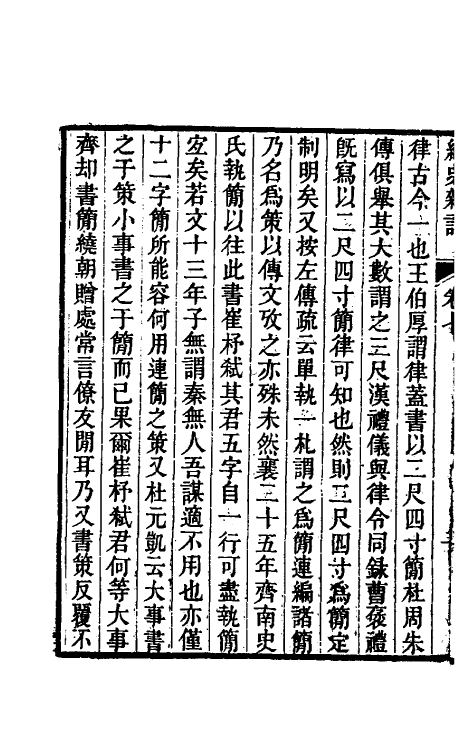 律古今一也王伯厚謂律蓋書以二尺四寸簡杜周朱
傳俱舉其大數謂之三尺漢禮儀與律令同錄曹襃禮
旣寫以二尺四寸簡律可知也然則二尺四寸爲簡定
制明矣又按左傳疏云單執一札謂之爲簡連編諸簡
乃名爲策以傳文攷之亦殊未然襄二十五年齊南史
氏執簡以往此書崔杼弑其君五字自一行可盡執簡
宜矣若文十三年子無謂秦無人吾謀適不用也亦僅
十二字簡所能容何用連簡之策又杜元凱云大事書
之于策小事書之于簡而已果爾崔杼弑君何等大事
齊却書簡繞朝贈處常言僚友閒耳乃又書策反覆不